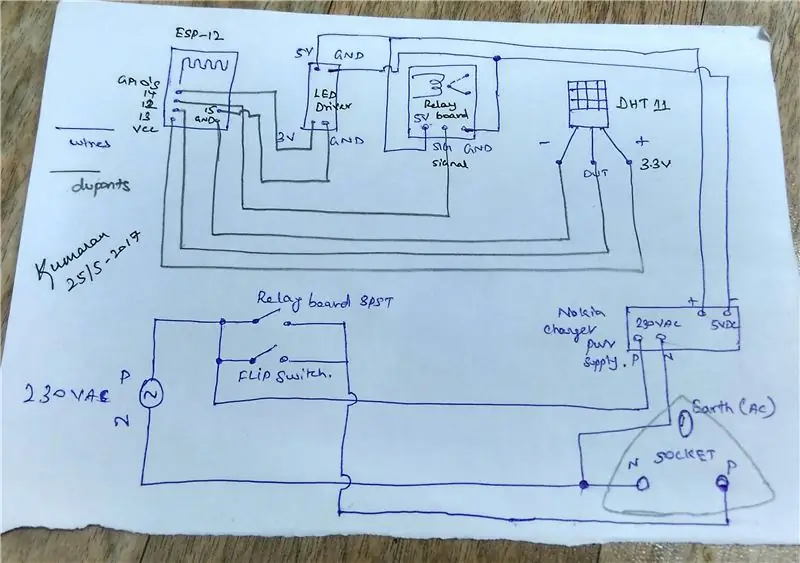 ESP-12
GPIO's
14
12
13
VCC
15
GND
5V
GND
LED
Driver
3V
GND
Relay
board
5V
SIG
GND
signal
DHT 11
-
+
OUT
3.3V
wires
duponts
Kumaran
25/5-2017
Relay board SPST
FLIP Switch.
230VAC
P
N
Nokia
charger
pwr
supply.
230VAC
5VDC
+
-
P
N
Earth (AC)
SOCKET
N
P